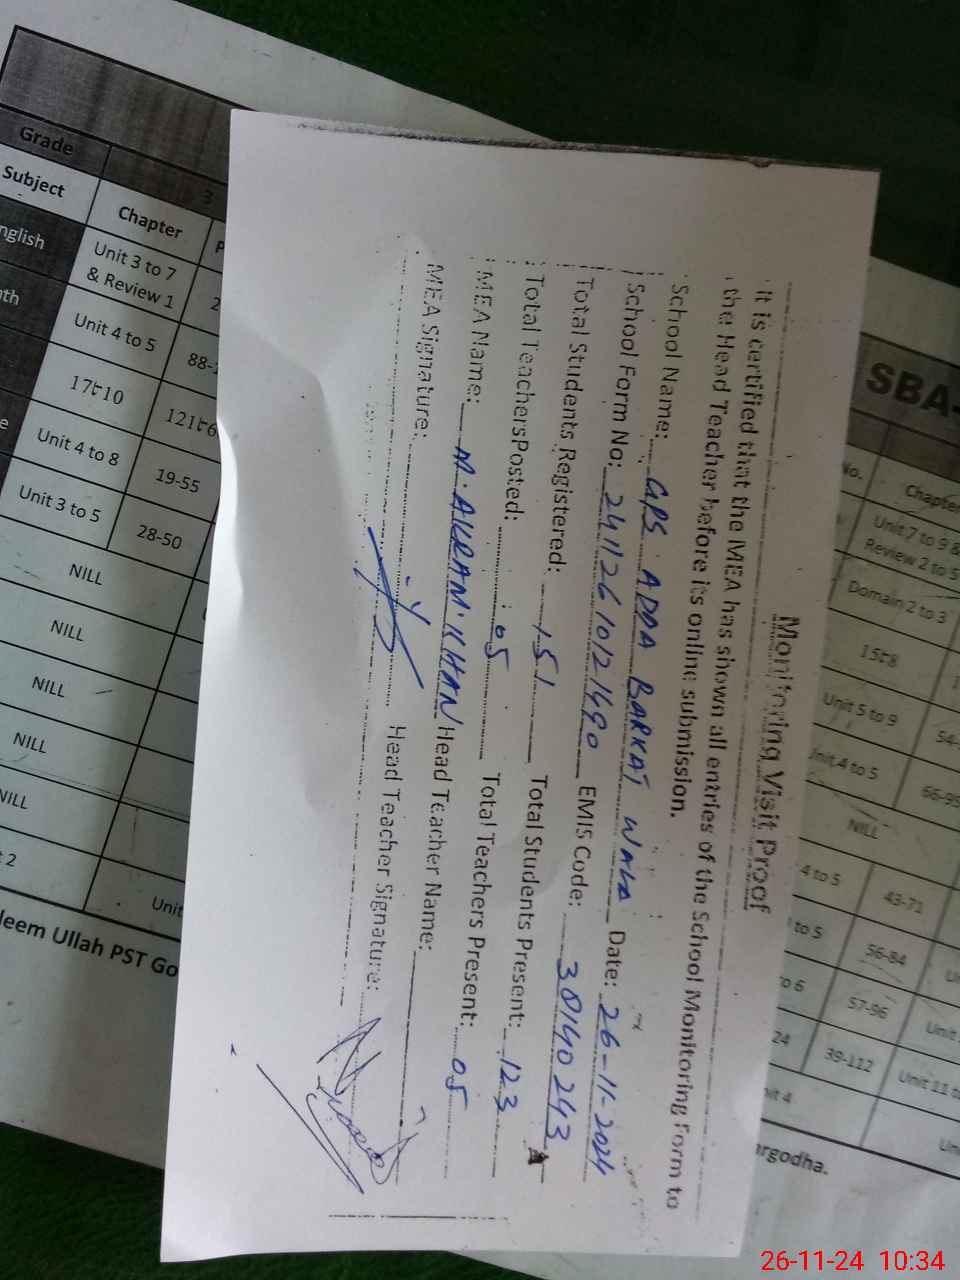 Monitoring Visit Proof
It is certified that the MEA has shown all entries of the School Monitoring Form to
the Head Teacher before its online submission.
School Name: GPS ADDA BARKAT WALA Date: 26-11-2024
School Form No: 24112610121490 EMIS Code: 38140243
Total Students Registered: 151 Total Students Present: 123
Total TeachersPosted: 05 Total Teachers Present: 05
MEA Name: M. AKRAM KHAN Head Teacher Name:
MEA Signature: Head Teacher Signature:
Grade 3
Subject Chapter
nglish Unit 3 to 7 & Review 1
Unit 4 to 5 88-
17t10 121t6
Unit 4 to 8 19-55
Unit 3 to 5 28-50
NILL
NILL
NILL
NILL
NILL
Unit
leem Ullah PST Go
SBA-
No. Chapter
Unit 7 to 9 &
Review 2 to 5
Domain 2 to 3
15t8
Unit 5 to 9 54-
Unit 4 to 5 66-95
NILL
4 to 5 43-71
to 5 56-84
to 6 57-96 Unit
24 39-112 Unit 11 to
nit 4
rgodha.
26-11-24 10:34